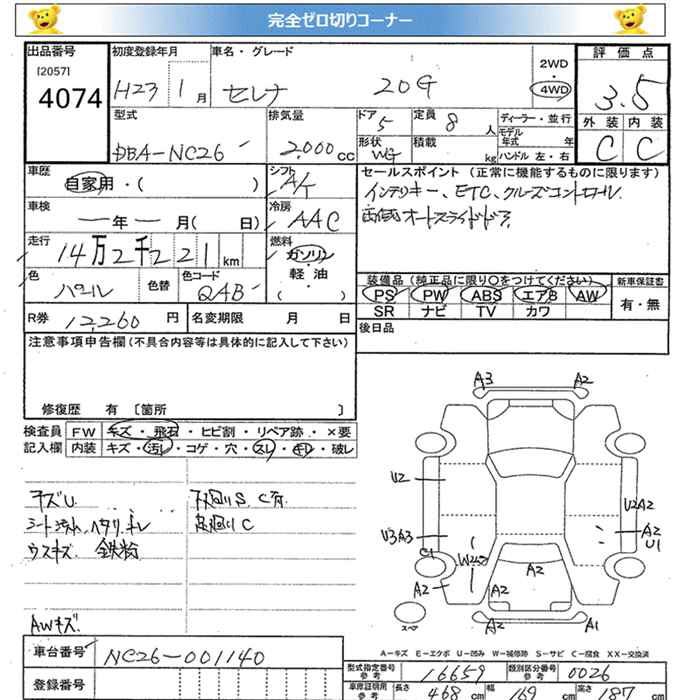 完全ゼロ切りコーナー
出品番号 初度登録年月 車名・グレード 評価点
[2057] 4074
H23 1月 セレナ 20G 2WD・4WD 3.5
型式 排気量 ドア 定員 ディーラー・並行 外装 内装
DBA-NC26 2,000cc 5 8人 モデル年式 年 C C
形状 WG 積載 kg ハンドル 左・右
車歴 自家用・( ) シフト A/T セールスポイント (正常に機能するものに限ります)
インテリキー、ETC、クルーズコントロール
車検 ―年―月( 日) 冷房 AAC
両側オートスライドドア
走行 14万2千221km 燃料 ガソリン 軽油 ( ・ )
色 パール 色替 色コード QAB
装備品(純正品に限り○をつけてください) 新車保証書
PS PW ABS エアB AW 有・無
SR ナビ TV カワ
R券 12,260円 名変期限 月 日 後日品
注意事項申告欄(不具合内容等は具体的に記入して下さい)
修復歴 有 [箇所 ]
検査員 FW キズ・飛石・ヒビ割・リペア跡・×要
記入欄 内装 キズ・汚レ・コゲ・穴・スレ・キレ・破レ
キズU 下廻りS、C有
シート汚れ、ハタリ、キレ 足廻りC
ウスキズ 鉄粉
AWキズ
A3 A2
U2 U2A2
U3A3 A2
C1 U1
W2 A2
A2 A2
スペ A2 A1
A-キズ E-エクボ U-凹み W-補修跡 S-サビ C-腐食 XX-交換済
車台番号 NC26-001140
型式指定番号 参考 16659 類別区分番号 参考 0026
登録番号 車庫証明用 参考 長さ 468cm 幅 169cm 高さ 187cm